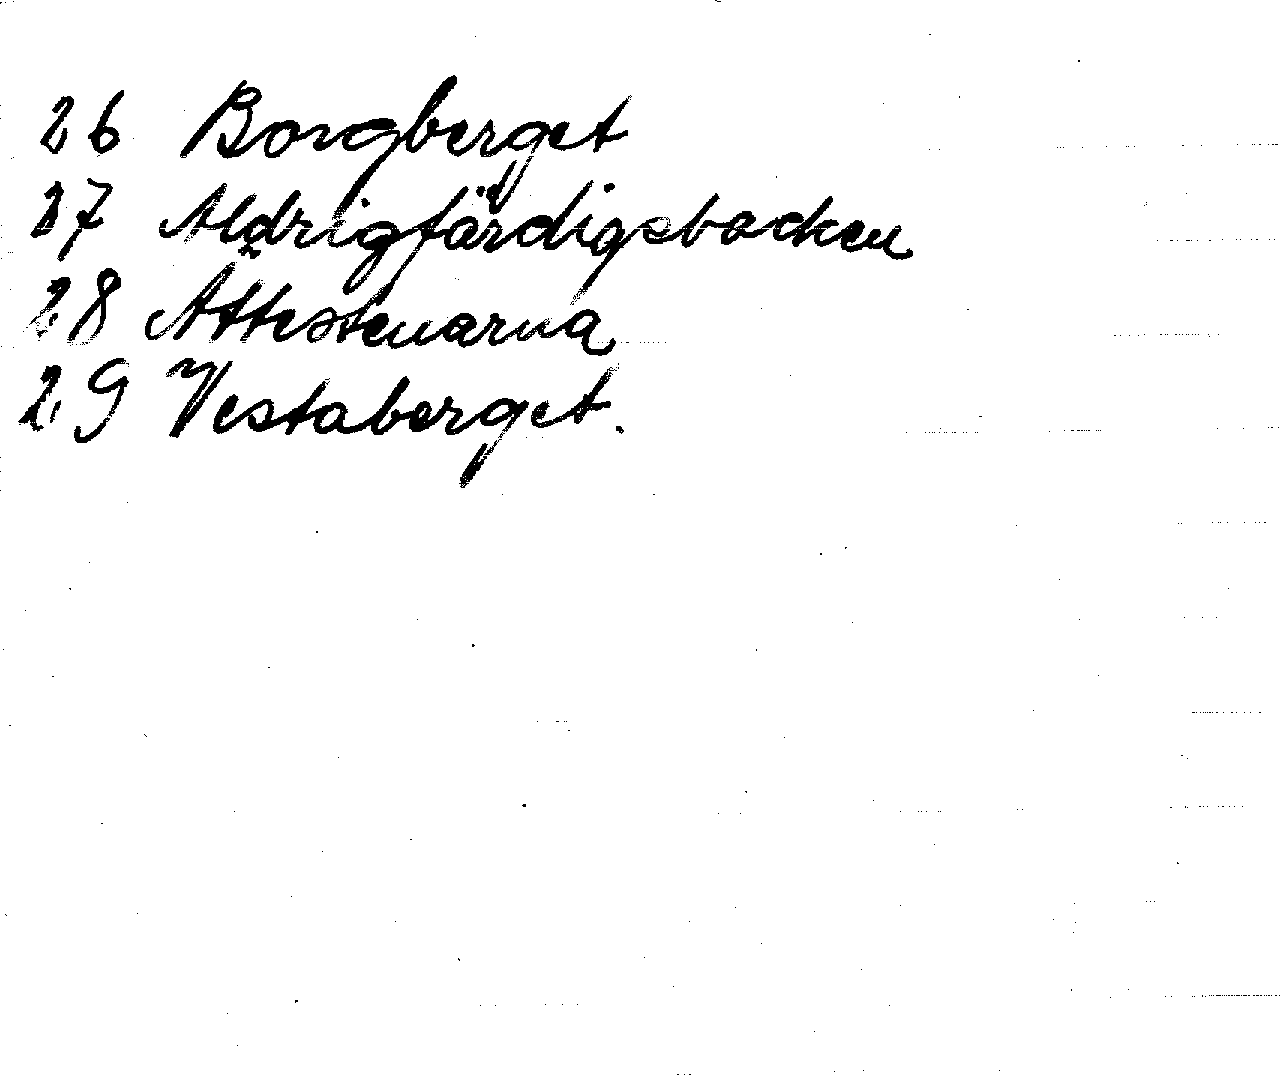 26 Borgberget
27 Aldrigfärdigsbacken
28 Ättestenarna
29 Vestaberget.